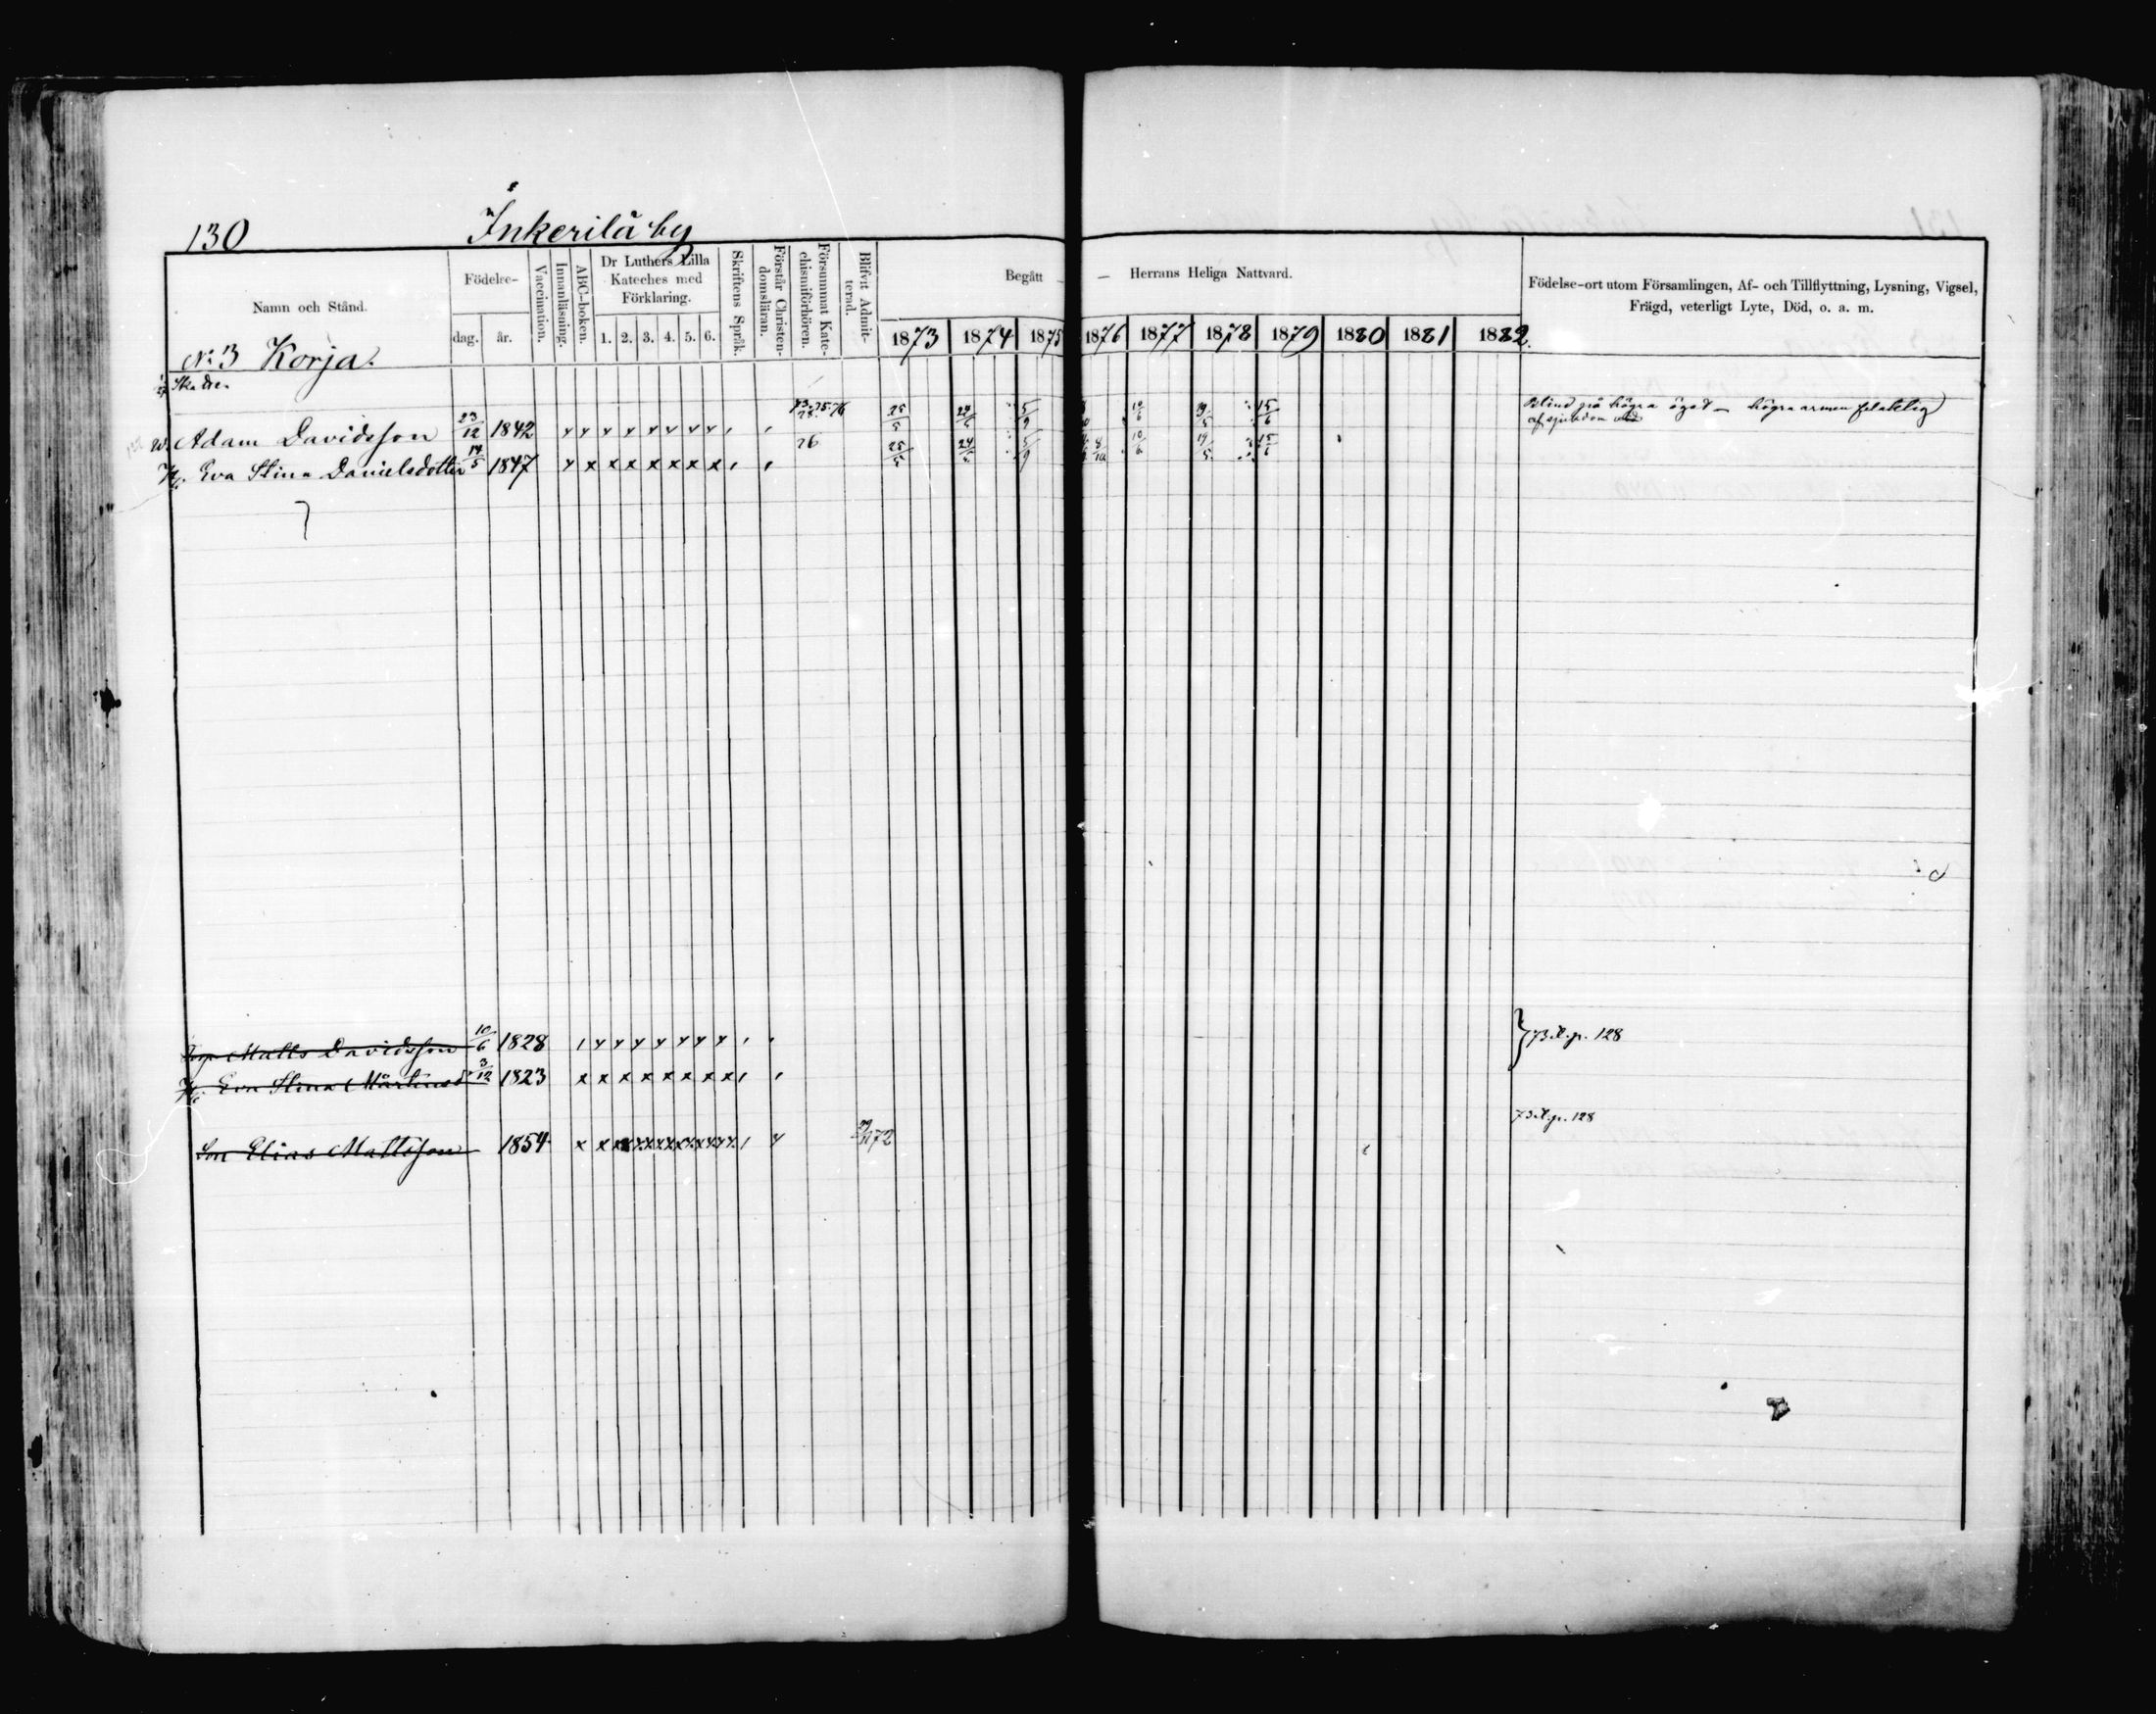 130 Inkerilä by
Namn och Stånd.
Födelse-
dag. år.
Vaccination.
Innanläsning.
ABC-boken.
Dr Luthers Lilla
Kateches med
Förklaring.
1. 2. 3. 4. 5. 6.
Skriftens Språk.
Förstår Christen-
domsläran.
Försummat Kate-
chismiförhören.
Blifvit Admit-
terad.
Begått — Herrans Heliga Nattvard.
1873 1874 1875 1876 1877 1878 1879 1880 1881 1882.
Födelse-ort utom Församlingen, Af- och Tillflyttning, Lysning, Vigsel,
Frägd, veterligt Lyte, Död, o. a. m.
No 3 Korja.
Adam Davidsson 23/12 1842 25/5 24/5 5/9 10/6 19/5 15/6 Blind på högra ögat – högra armen felaktig
af sjukdom
H. Eva Stina Danielsdotter 14/5 1847 76 25/5 24/5 5/9 8/10 10/6 19/5 15/6
Matts Davidsson 10/6 1828 73 x.p. 128
H. Eva Stina Mårtensd 3/12 1823
Son Elias Mattsson 1854 72 73 x.p. 128